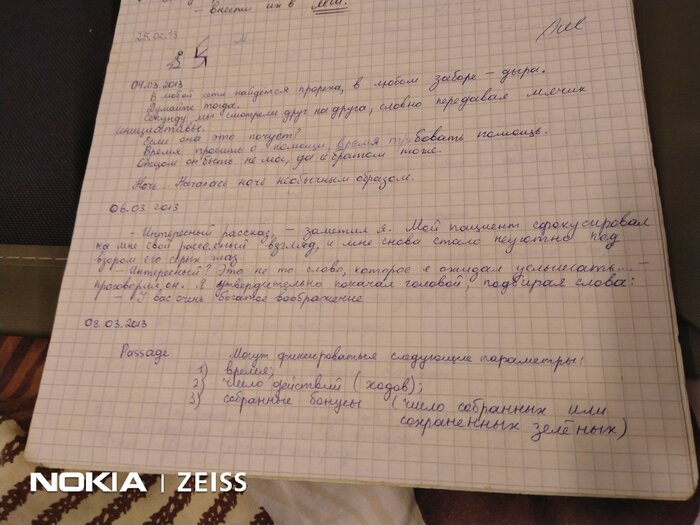 - Внести их в
26.02.13
04.03.2013
В любой сети найдется прореха, в любом заборе – дыра.
Думайте тогда.
Секунду мы смотрели друг на друга, словно передавая мячик
инициативы.
Если она это почует?
Время просить о помощи, время требовать помощь.
Отцом он быть не мог, да и братом тоже.
Ночь. Началась ночь необычным образом.
06.03 2013
- Интересный рассказ, – заметил я. Мой пациент сфокусировал
на мне свой рассеянный взгляд, и мне снова стало неуютно под
взором его серых глаз
- Интересный? Это не то слово, которое я ожидал услышать... –
проговорил он. Я утвердительно покачал головой, подбирая слова:
- У вас очень богатое воображение
08.03.2013
Passage Могут фиксироваться следующие параметры:
1) время;
2) число действий (ходов);
3) собранные бонусы (число собранных или
сохраненных зелёных)
NOKIA | ZEISS